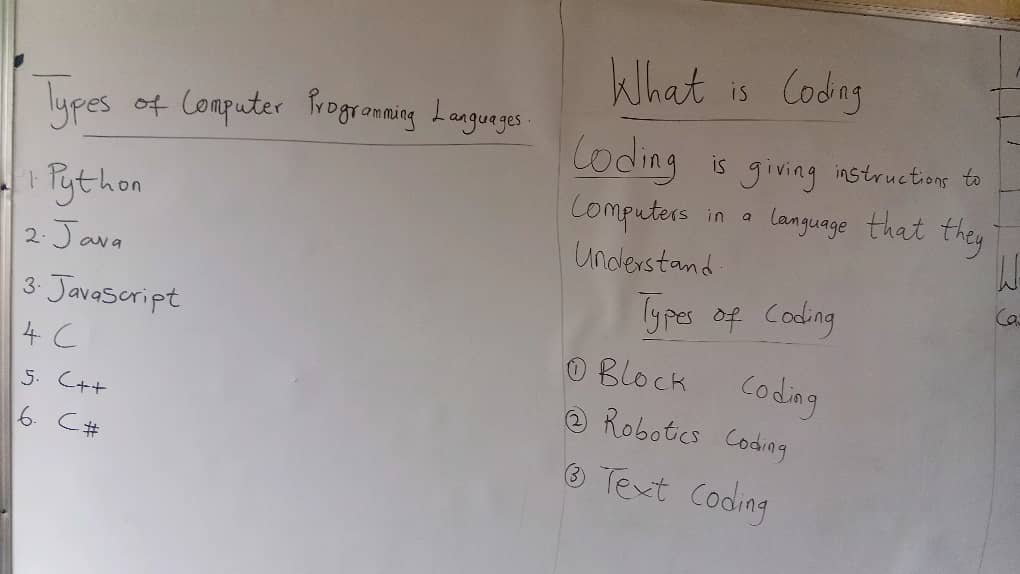 Types of Computer Programming Languages.
1. Python
2. Java
3. Javascript
4. C
5. C++
6. C#
What is Coding
Coding is giving instructions to
Computers in a language that they
Understand.
Types of Coding
① Block Coding
② Robotics Coding
③ Text Coding